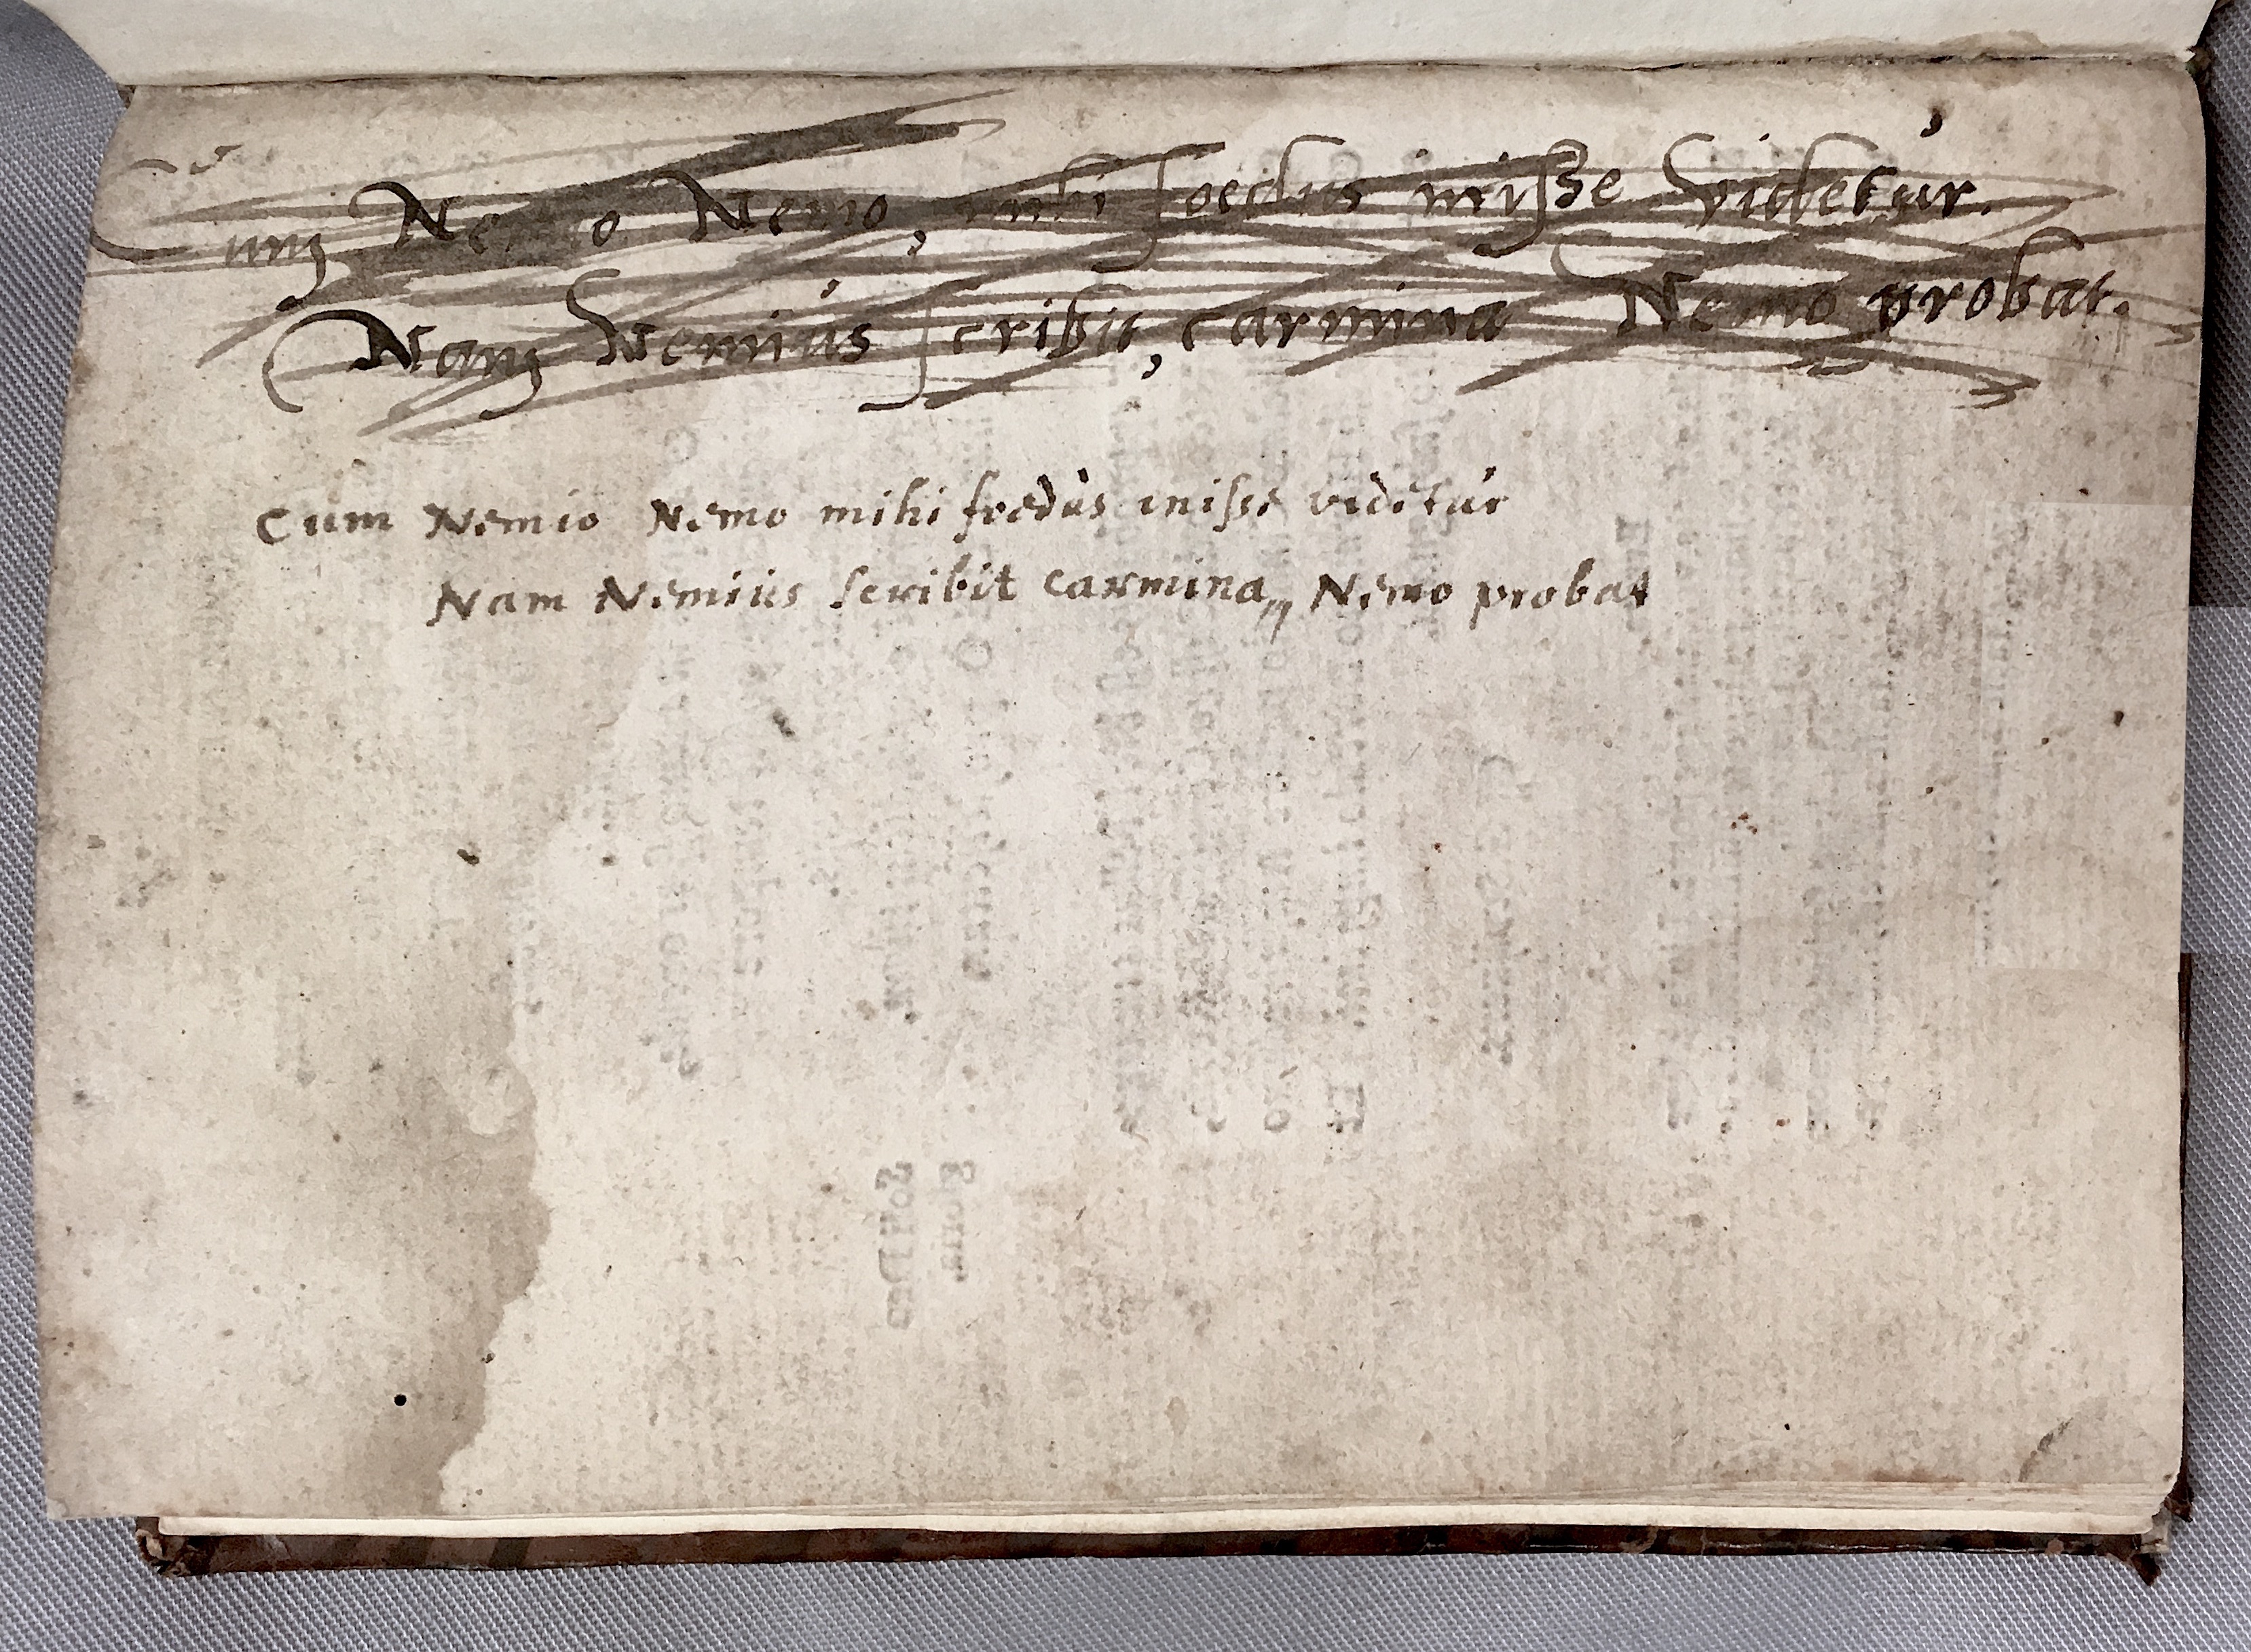 Cum Nemio Nemo, mihi foedus inisse videtur.
Nam Nemius scribit, carmina Nemo probat.
Cum Nemio Nemo mihi foedus inisse videtur
Nam Nemius scribit carmina,,, Nemo probat